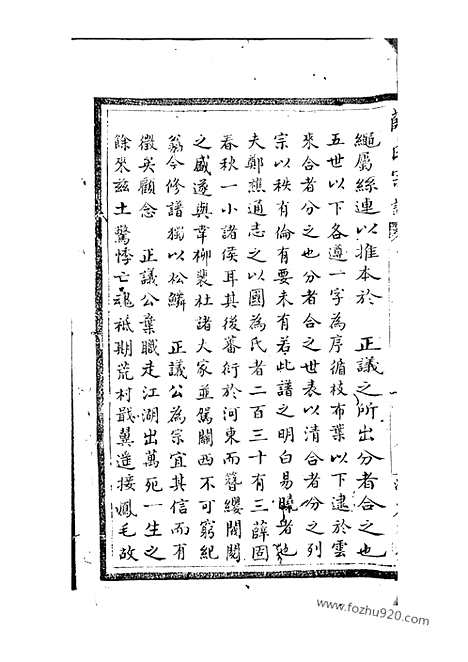 薛氏宗譜
繩屬絲連以推本於　正議之所出分者合之也
五世以下各遵一字為序循枝布葉以下逮於雲
來合者分之也分者合之世表以清合者分之列
宗以秩有倫有要未有若此譜之明白易曉者也
夫鄭樵通志之以國為氏者二百三十有三薛固
春秋一小諸侯耳其後蕃衍於河東而簪纓閥閱
之盛遂與韋柳裴杜諸大家並駕關西不可窮紀
翁今修譜獨以松鱗　正議公為宗宜其信而有
徵矣顧念　正議公棄職走江湖出萬死一生之
餘來茲土驚悸亡魂祗期荒村戢翼遥接鳳毛故
www.fozhu920.com